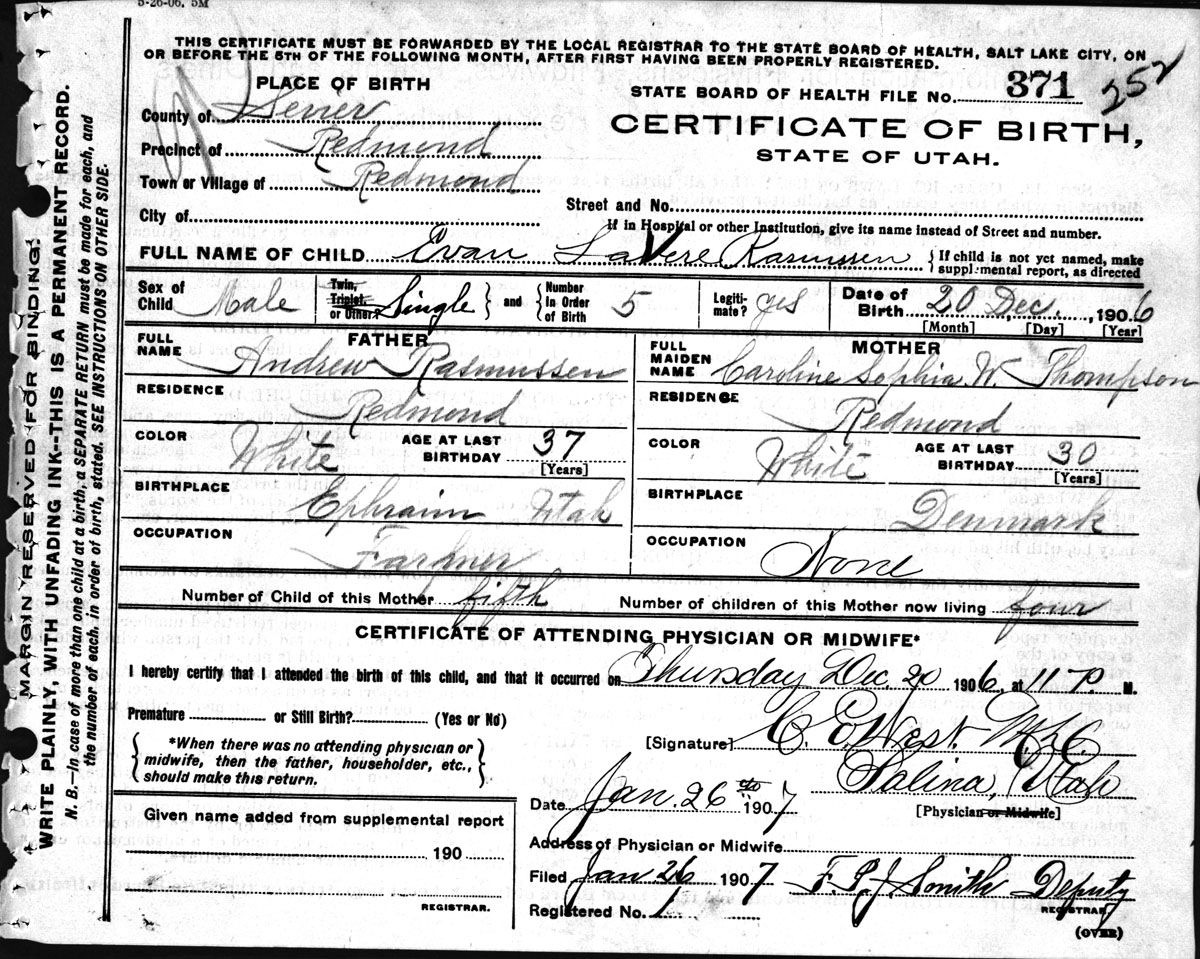 5-26-06. 5M
THIS CERTIFICATE MUST BE FORWARDED BY THE LOCAL REGISTRAR TO THE STATE BOARD OF HEALTH, SALT LAKE CITY, ON
OR BEFORE THE 5TH OF THE FOLLOWING MONTH, AFTER FIRST HAVING BEEN PROPERLY REGISTERED.
PLACE OF BIRTH
STATE BOARD OF HEALTH FILE No. 371 252
County of Sevier
CERTIFICATE OF BIRTH,
Precinct of Redmond
STATE OF UTAH.
Town or Village of Redmond
Street and No.
City of
If in Hospital or other Institution, give its name instead of Street and number.
FULL NAME OF CHILD Evan LaVere Rasmussen { If child is not yet named, make supplemental report, as directed
Sex of Child Male
Twin, Triplet, or Other? Single } and { Number In Order of Birth 5
Legiti- mate? yes
Date of Birth 20 Dec., 1906
[Month] [Day] [Year]
FATHER
FULL NAME Andrew Rasmussen
RESIDENCE Redmond
COLOR White AGE AT LAST BIRTHDAY 37
[Years]
BIRTHPLACE Ephraim Utah
OCCUPATION Farmer
MOTHER
FULL MAIDEN NAME Caroline Sophia W. Thompson
RESIDENCE Redmond
COLOR White AGE AT LAST BIRTHDAY 30
[Years]
BIRTHPLACE Denmark
OCCUPATION None
Number of Child of this Mother fifth Number of children of this Mother now living four
CERTIFICATE OF ATTENDING PHYSICIAN OR MIDWIFE*
I hereby certify that I attended the birth of this child, and that it occurred on Thursday Dec. 20 1906. at 11 P. M.
Premature or Still Birth? (Yes or No)
{ *When there was no attending physician or
midwife, then the father, householder, etc.,
should make this return. }
[Signature] C. E. West.
Salina, Utah
Date Jan. 26th 1907
[Physician or Midwife]
Given name added from supplemental report
190
REGISTRAR.
Address of Physician or Midwife
Filed Jan 26 1907 F. P. J Smith Deputy
REGISTRAR
Registered No. 1
(OVER)
MARGIN RESERVED FOR BINDING.
WRITE PLAINLY, WITH UNFADING INK--THIS IS A PERMANENT RECORD.
N. B.—In case of more than one child at a birth, a SEPARATE RETURN must be made for each, and
the number of each, in order of birth, stated. SEE INSTRUCTIONS ON OTHER SIDE.